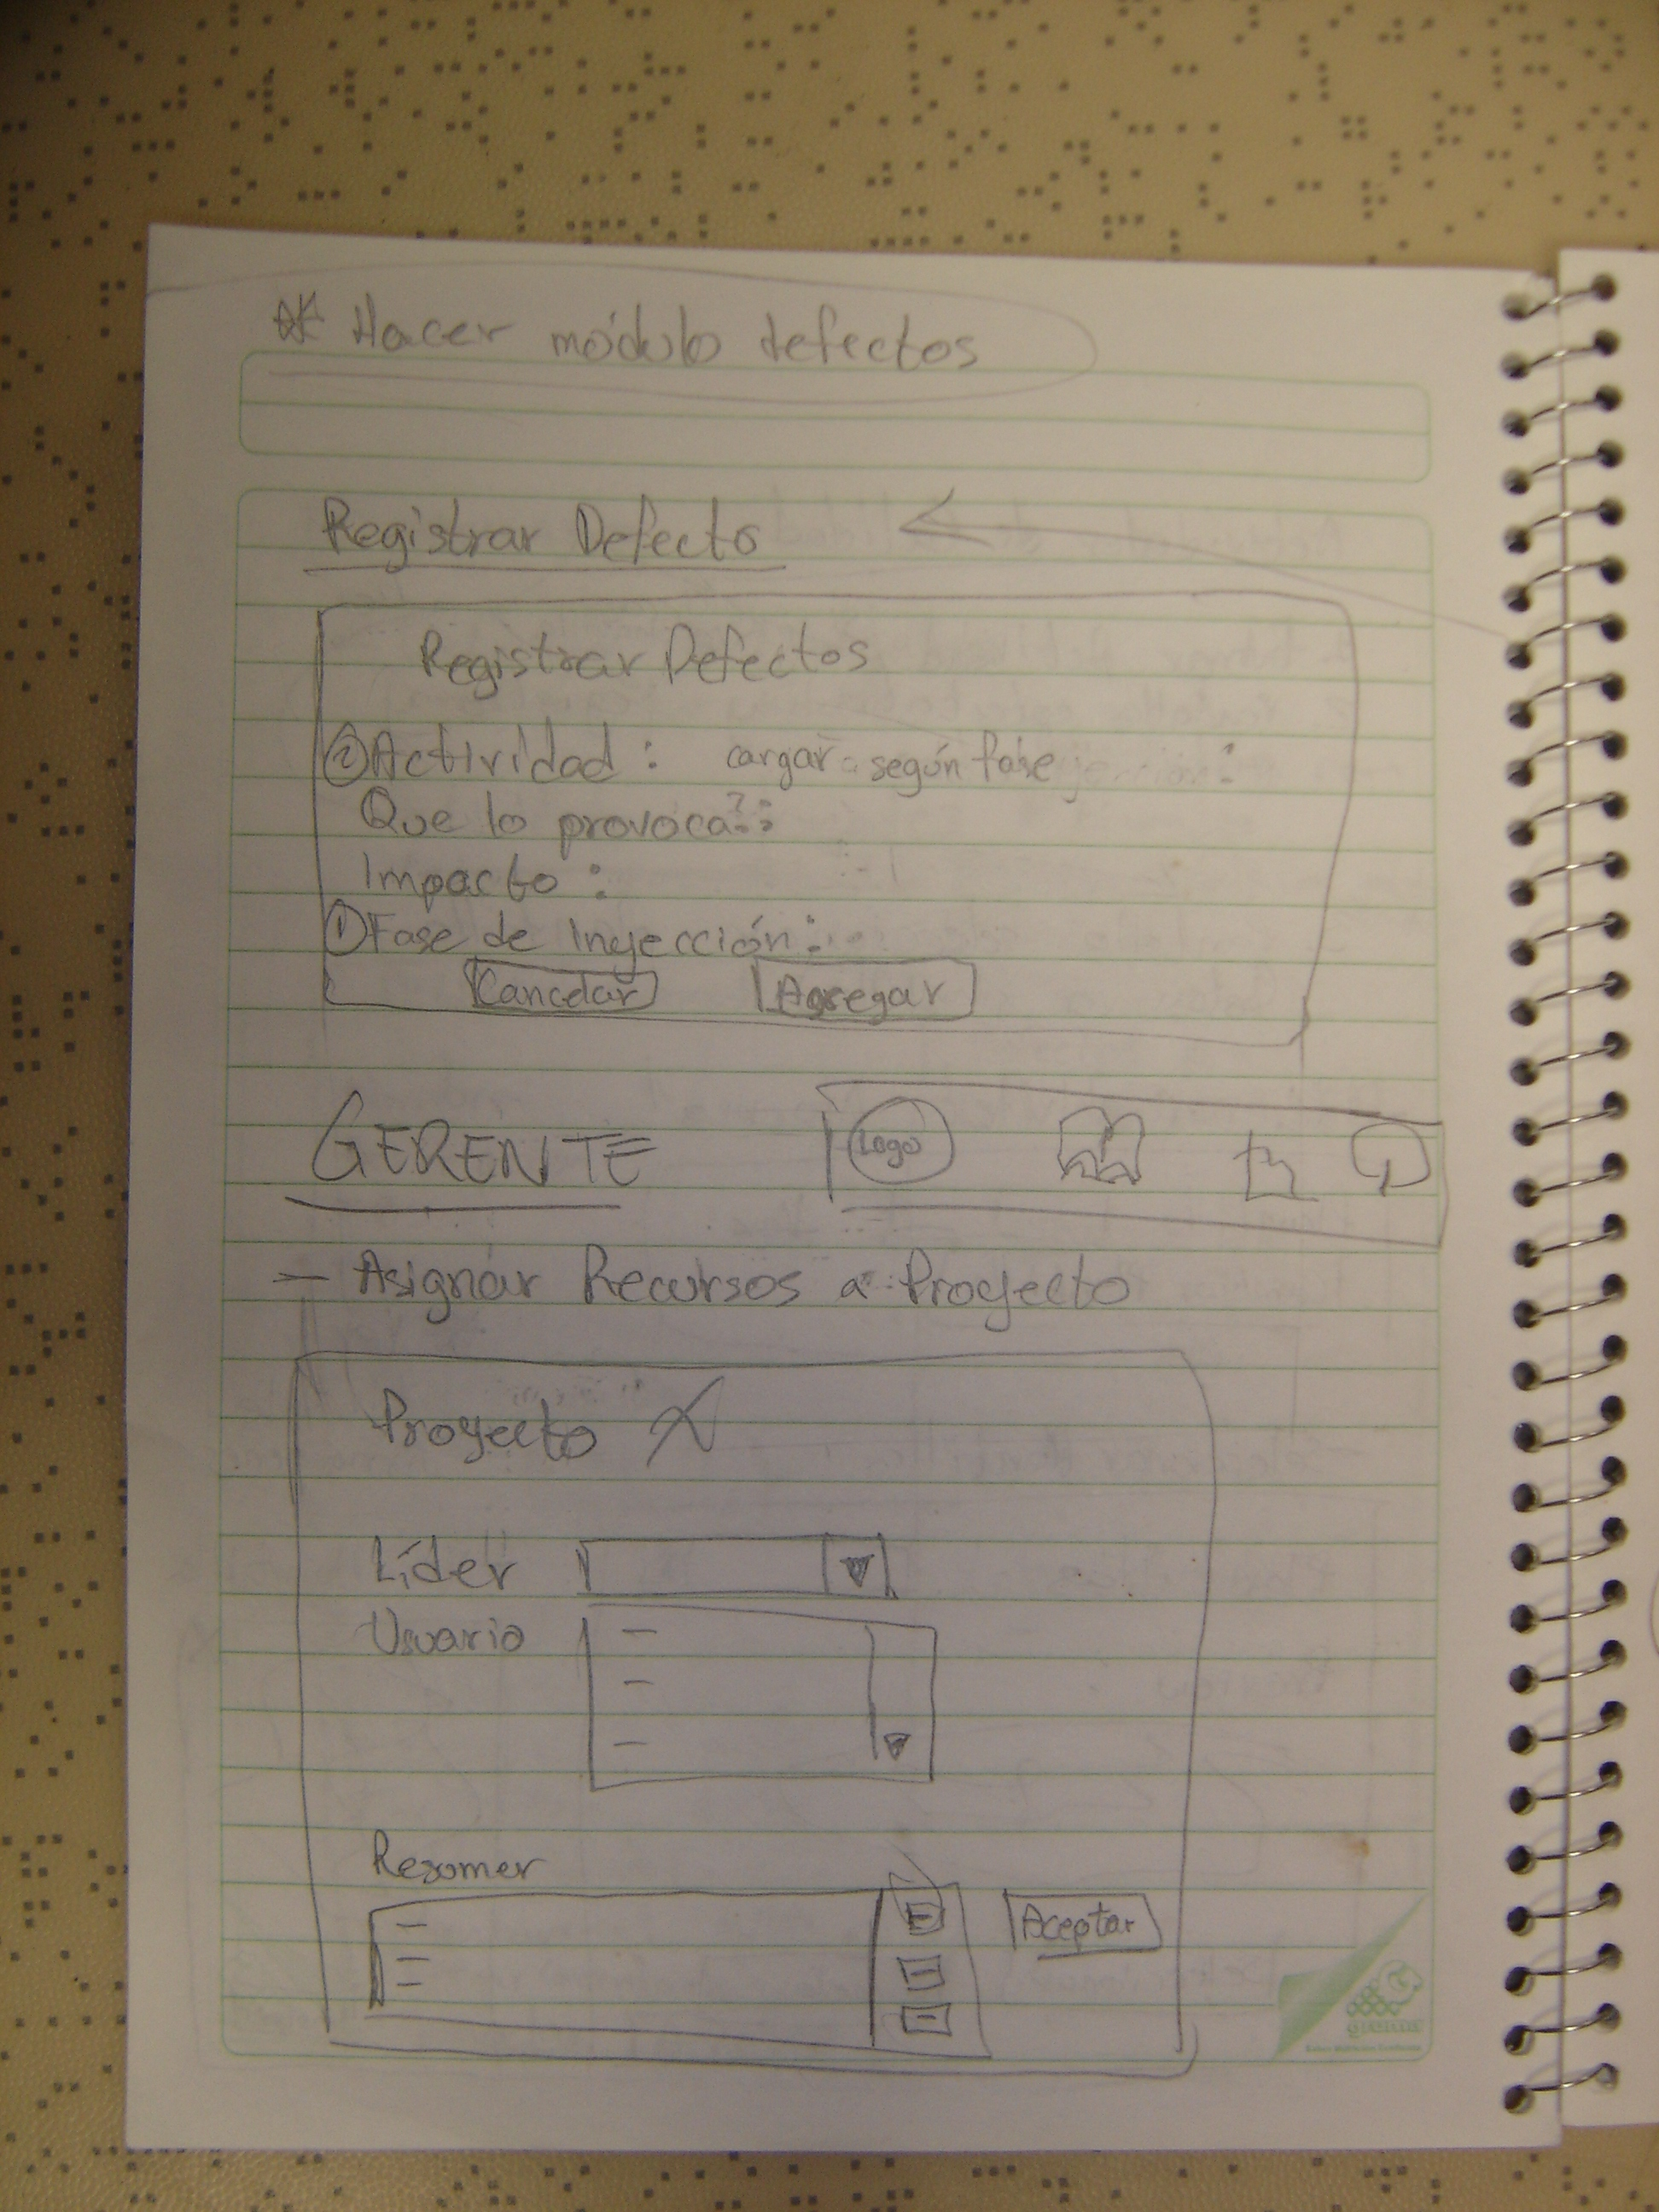 * Hacer módulo defectos
Registrar Defecto
Registrar Defectos
② Actividad : cargar según fase :
Que lo provoca?:
Impacto :
① Fase de Inyección :
Cancelar Agregar
GERENTE Logo
— Asignar Recursos a Proyecto
Proyecto X
Líder
Usuario
Resumer
Aceptar
gruma